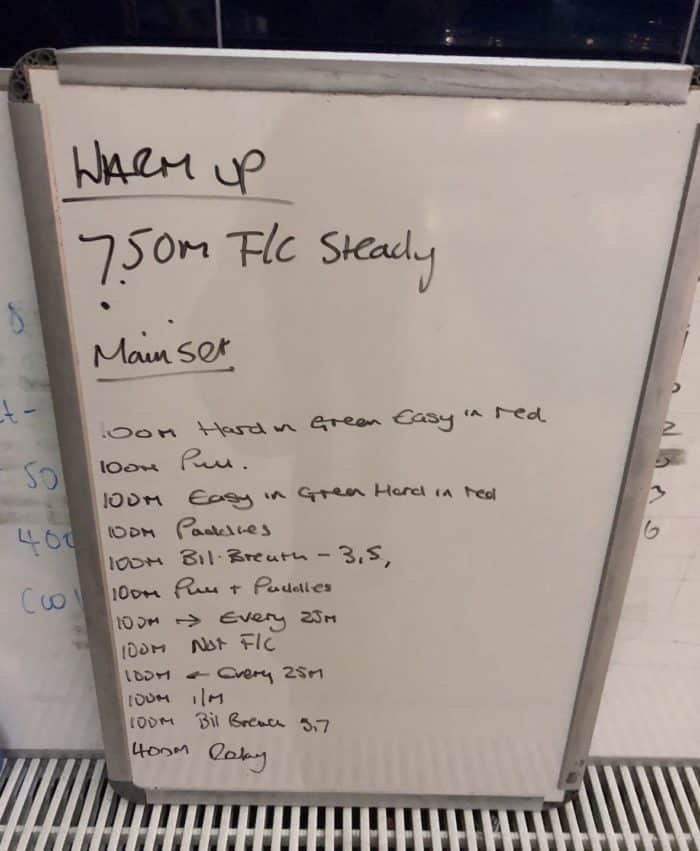 WARM UP
750m F/C Steady
Main set
100m Hard in Green Easy in red
100m Pull.
100m Easy in Green Hard in red
100m Paddles
100m Bil-Breath - 3,5,
100m Pull + Paddles
100m → Every 25m
100m Not F/C
100m ← Every 25m
100m I/M
100m Bil Breath 5,7
400m Relay
8
t-
50
400
Cool
2
3
6